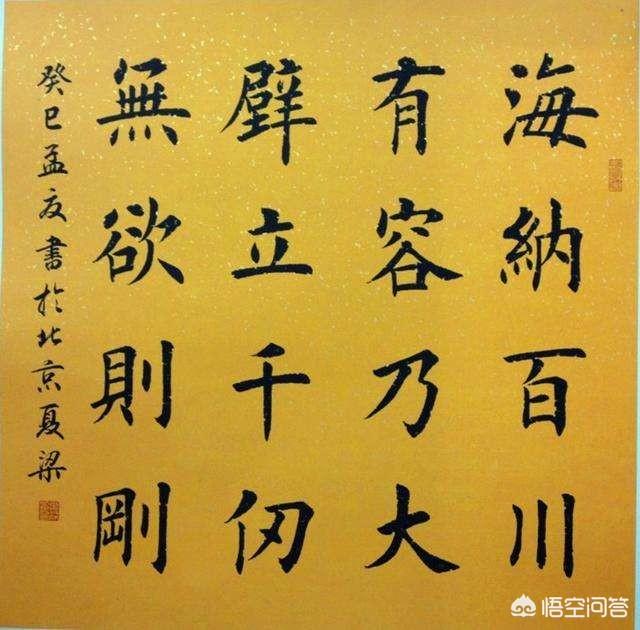 海納百川
有容乃大
壁立千仞
無欲則剛
癸巳孟夏書於北京夏梁
悟空问答